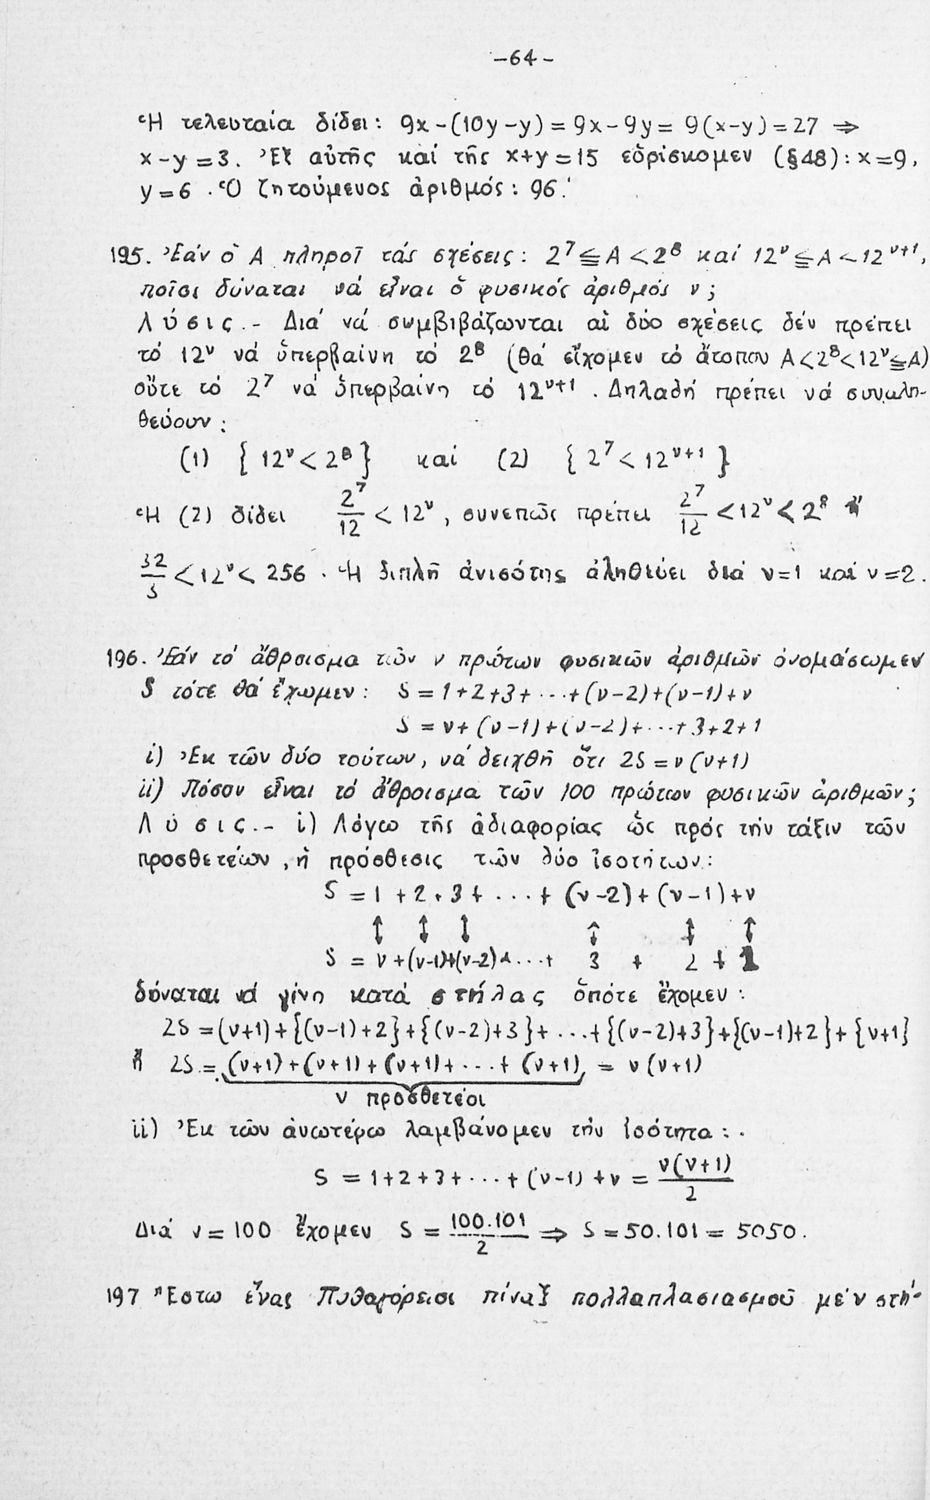 -64-
Ἡ τελευταία δίδει: 9x-(10y-y)=9x-9y=9(x-y)=27 ⇒
x-y=3. Ἐξ αὐτῆς καί τῆς x+y=15 εὑρίσκομεν (§48): x=9,
y=6. Ὁ ζητούμενος ἀριθμός: 96.
195. Ἐάν ὁ A πληροῖ τάς σχέσεις: 2⁷≦A<2⁸ καί 12^ν≦A<12^{ν+1},
ποῖοι δύναται νά εἶναι ὁ φυσικός ἀριθμός ν;
Λύσις.- Διά νά συμβιβάζωνται αἱ δύο σχέσεις δέν πρέπει
τό 12^ν νά ὑπερβαίνη τό 2⁸ (θά εἴχομεν τό ἄτοπον A<2⁸<12^ν≦A)
οὔτε τό 2⁷ νά ὑπερβαίνη τό 12^{ν+1}. Δηλαδή πρέπει νά συναλη-
θεύουν:
(1) {12^ν<2⁸} καί (2) {2⁷<12^{ν+1}}
Ἡ (2) δίδει 2⁷/12 < 12^ν, συνεπῶς πρέπει 2⁷/12 <12^ν<2⁸ ἤ
32/3 <12^ν< 256. Ἡ διπλῆ ἀνισότης ἀληθεύει διά ν=1 καί ν=2.
196. Ἐάν τό ἄθροισμα τῶν ν πρώτων φυσικῶν ἀριθμῶν ὀνομάσωμεν
S τότε θά ἔχωμεν: S=1+2+3+...+(ν-2)+(ν-1)+ν
S=ν+(ν-1)+(ν-2)+...+3+2+1
i) Ἐκ τῶν δύο τούτων, νά δειχθῆ ὅτι 2S=ν(ν+1)
ii) Πόσον εἶναι τό ἄθροισμα τῶν 100 πρώτων φυσικῶν ἀριθμῶν;
Λύσις.- i) Λόγω τῆς ἀδιαφορίας ὡς πρός τήν τάξιν τῶν
προσθετέων, ἡ πρόσθεσις τῶν δύο ἰσοτήτων:
S=1+2+3+...+(ν-2)+(ν-1)+ν
↕ ↕ ↕ ↕ ↕ ↕
S=ν+(ν-1)+(ν-2)+...+ 3 + 2 + 1
δύναται νά γίνη κατά στήλας ὁπότε ἔχομεν:
2S=(ν+1)+{(ν-1)+2}+{(ν-2)+3}+...+{(ν-2)+3}+{(ν-1)+2}+{ν+1}
ἤ 2S=(ν+1)+(ν+1)+(ν+1)+...+(ν+1)=ν(ν+1)
ν προσθετέοι
ii) Ἐκ τῶν ἀνωτέρω λαμβάνομεν τήν ἰσότητα:
S=1+2+3+...+(ν-1)+ν=ν(ν+1)/2
Διά ν=100 ἔχομεν S=100.101/2 ⇒ S=50.101=5050.
197 Ἔστω ἕνας Πυθαγόρειοι πίναξ πολλαπλασιασμοῦ μέ ν στή-